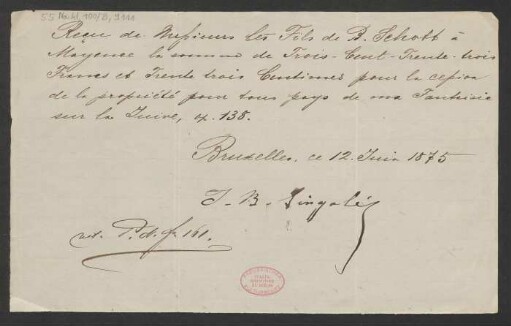 55 Nachl. 100/B, 3110
Reçu de Messieurs les Fils de B. Schott à
Mayence la somme de Trois-Cent-Trente-trois
Francs et Trente trois Centimes pour la cession
de la propriété pour tous pays de ma Fantaisie
sur la Juive, op. 138.
Bruxelles, ce 12 Juin 1875
J. B. Singelée